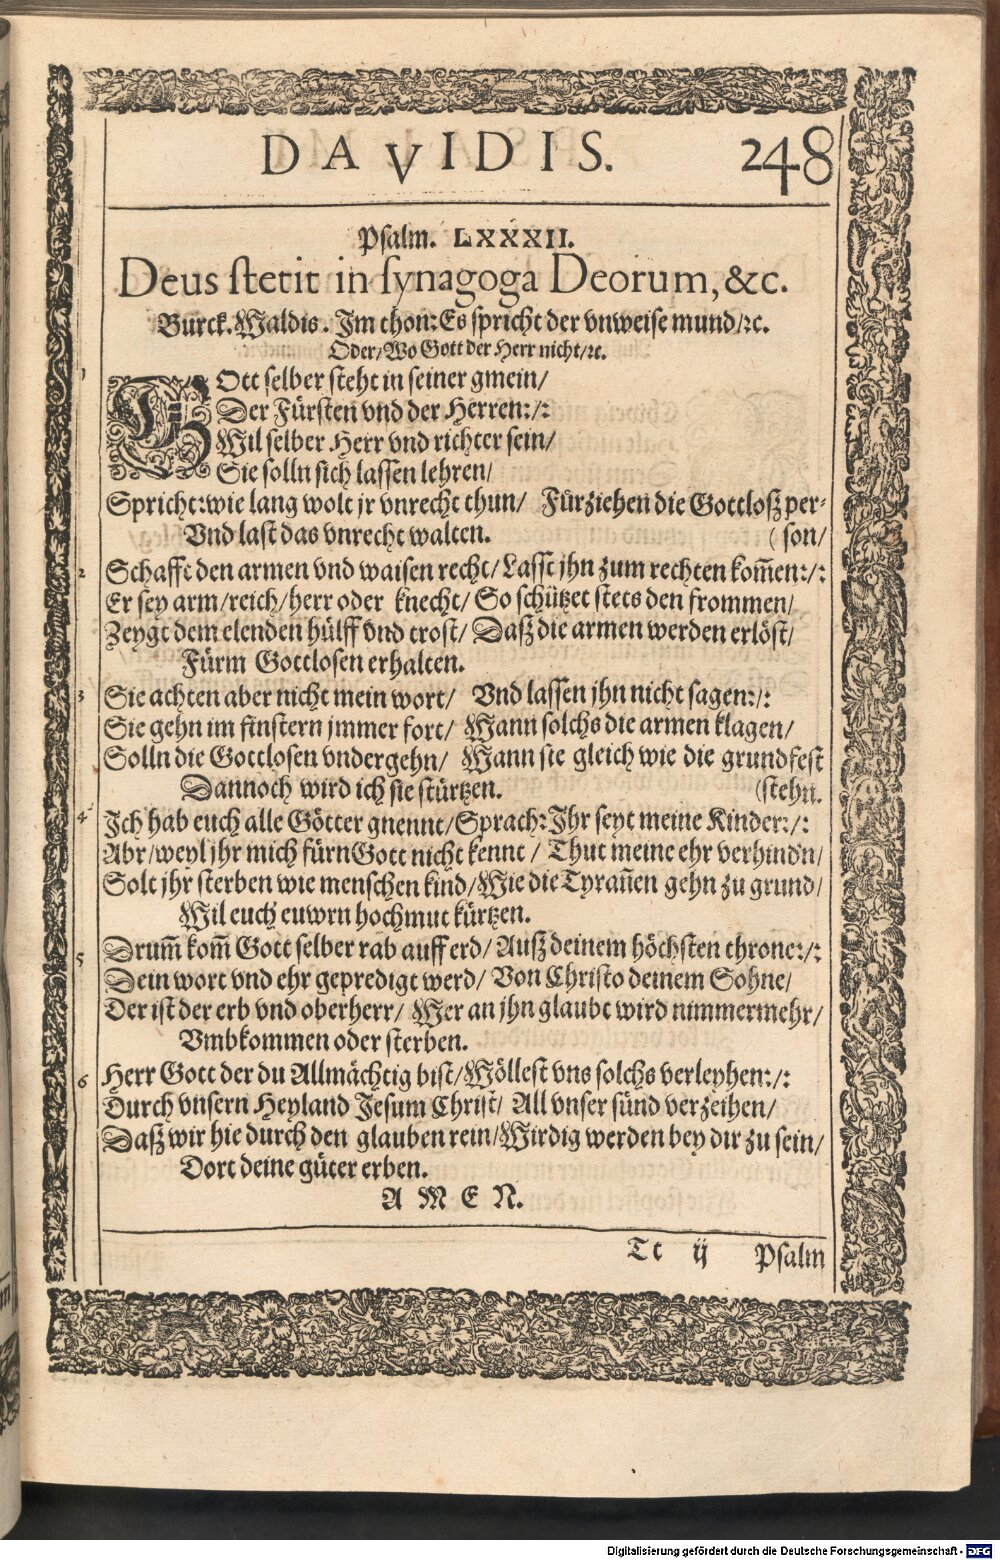 DAVIDIS. 248
Psalm. LXXXII.
Deus stetit in synagoga Deorum, &c.
Burck. Waldis. Im thon: Es spricht der vnweise mund/ꝛc.
Oder/Wo Gott der Herr nicht/ꝛc.
1 GOtt selber steht in seiner gmein/
Der Fürsten vnd der Herren:/:
Wil selber Herr vnd richter sein/
Sie solln sich lassen lehren/
Spricht: wie lang wolt jr vnrecht thun/ Fürziehen die Gottlosz per-
Vnd last das vnrecht walten. (son/
2 Schafft den armen vnd waisen recht/ Lasst jhn zum rechten kom̃en:/:
Er sey arm/reich/herr oder knecht/ So schützet stets den frommen/
Zeygt dem elenden hülff vnd trost/ Dasz die armen werden erlöst/
Fürm Gottlosen erhalten.
3 Sie achten aber nicht mein wort/ Vnd lassen jhn nicht sagen:/:
Sie gehn im finstern jmmer fort/ Wann solchs die armen klagen/
Solln die Gottlosen vndergehn/ Wann sie gleich wie die grundfest
Dannoch wird ich sie stürtzen. (stehn.
4 Ich hab euch alle Götter gnennt/ Sprach: Ihr seyt meine Kinder:/:
Abr/weyl jhr mich fürn Gott nicht kennt/ Thut meine ehr verhindn/
Solt jhr sterben wie menschen kind/ Wie die Tyrañen gehn zu grund/
Wil euch euwrn hochmut kürtzen.
5 Drum̃ kom̃ Gott selber rab auff erd/ Ausz deinem höchsten throne:/:
Dein wort vnd ehr gepredigt werd/ Von Christo deinem Sohne/
Der ist der erb vnd oberherr/ Wer an jhn glaubt wird nimmermehr/
Vmbkommen oder sterben.
6 Herr Gott der du Allmächtig bist/ Wöllest vns solchs verleyhen:/:
Durch vnsern Heyland Jesum Christ/ All vnser sünd verzeihen/
Dasz wir hie durch den glauben rein/ Wirdig werden bey dir zu sein/
Dort deine güter erben.
A M E N.
Tt ij Psalm
Digitalisierung gefördert durch die Deutsche Forschungsgemeinschaft - DFG